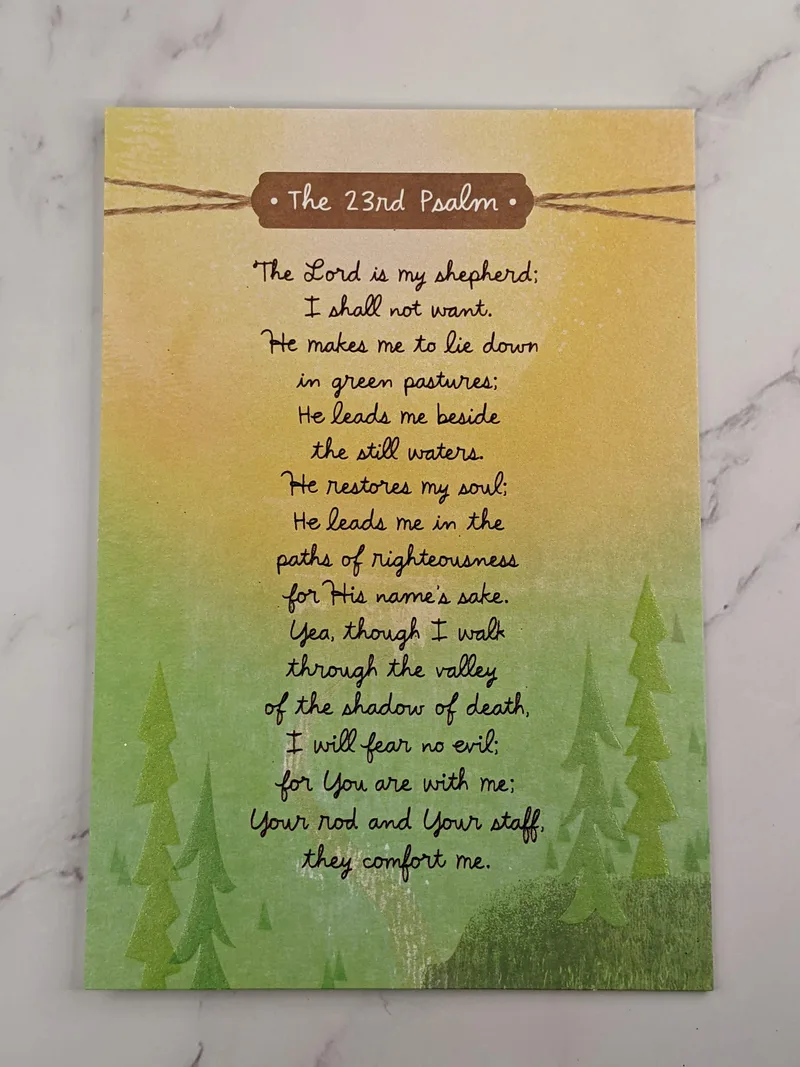 • The 23rd Psalm •
The Lord is my shepherd;
I shall not want.
He makes me to lie down
in green pastures;
He leads me beside
the still waters.
He restores my soul;
He leads me in the
paths of righteousness
for His name's sake.
Yea, though I walk
through the valley
of the shadow of death,
I will fear no evil;
for You are with me;
Your rod and Your staff,
they comfort me.